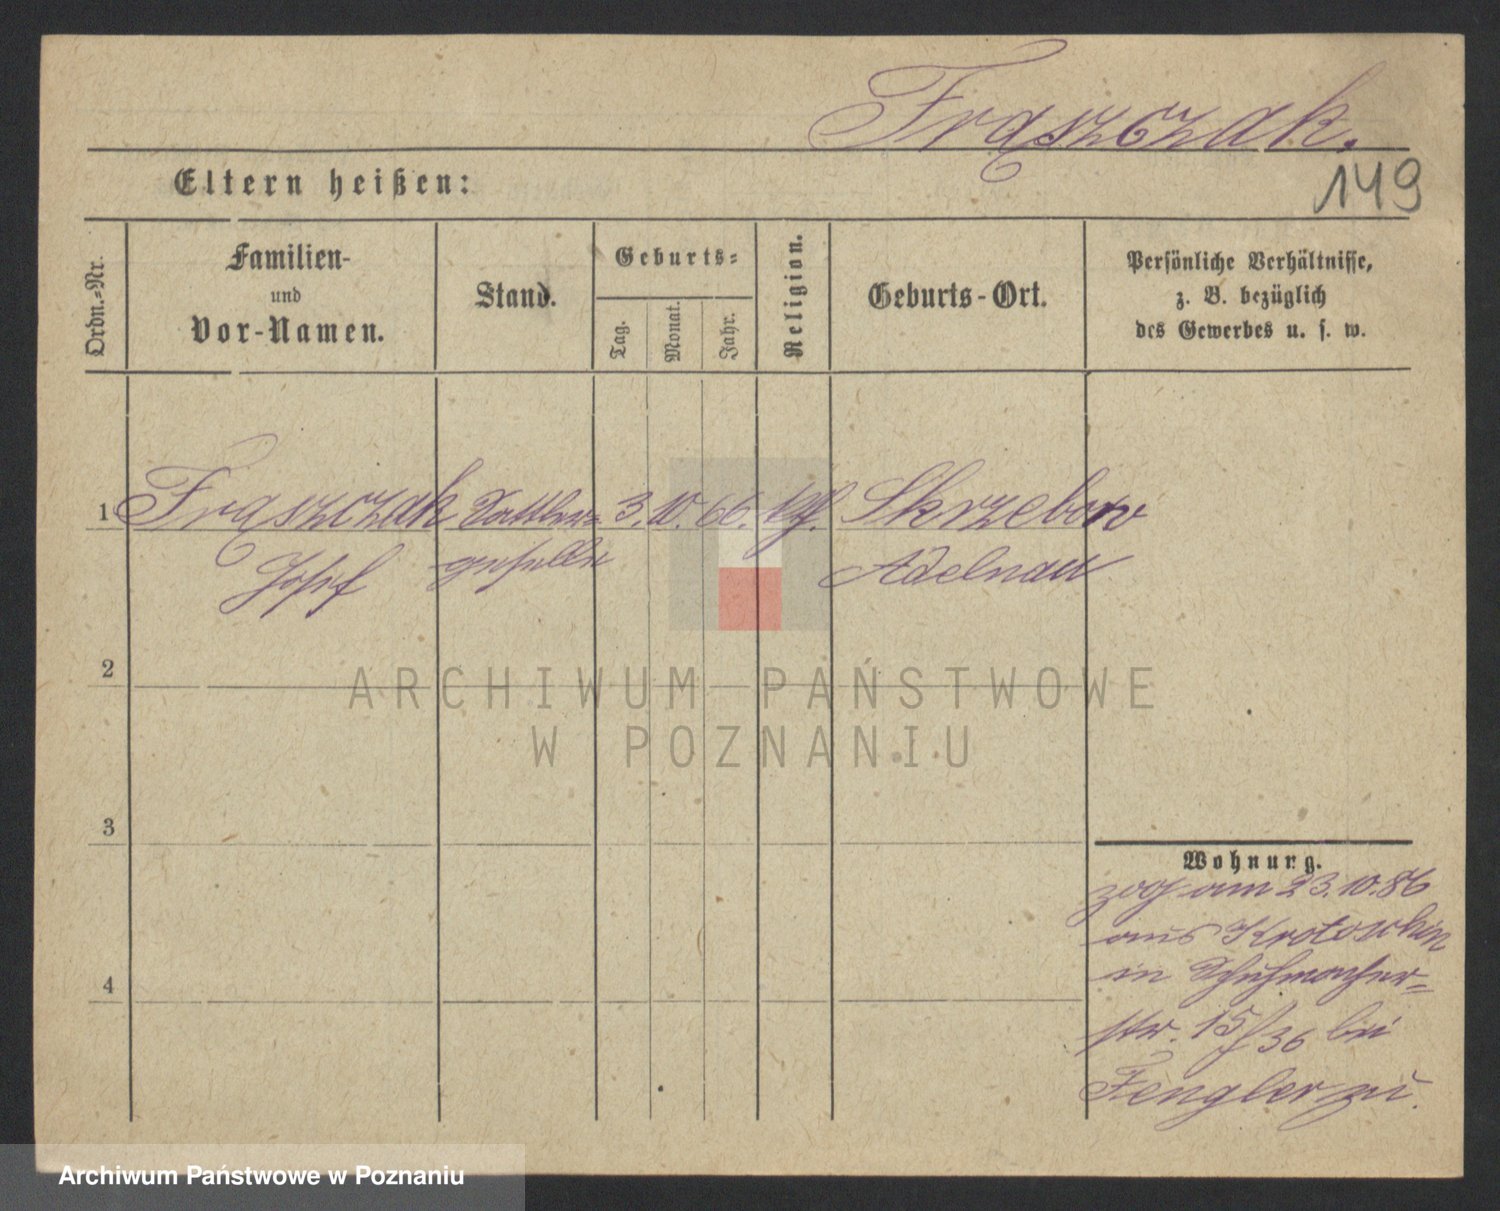 Frąszczak.
149
Eltern heißen:
Ordn.-Nr.
Familien-
und
Vor-Namen.
Stand.
Geburts-
Tag.
Monat.
Jahr.
Religion.
Geburts-Ort.
Persönliche Verhältnisse,
z. B. bezüglich
des Gewerbes u. s. w.
1 Frąszczak Sattler- 3. 10. 66. kth. Skrzebow
Josef geselle Adelnau
2
ARCHIWUM PAŃSTWOWE
W POZNANIU
3
4
Wohnung.
zog am 23.10.86
aus Krotoschin
in Schuhmacher-
str. 15/36 bei
Fengler zu.
Archiwum Państwowe w Poznaniu